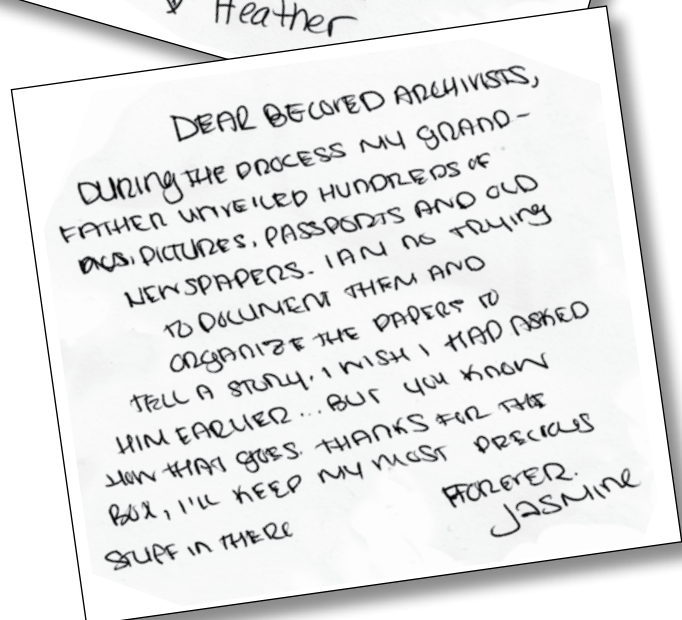 Heather
DEAR BELOVED ARCHIVISTS,
DURING THE PROCESS MY GRAND-
FATHER UNVEILED HUNDREDS OF
PICTURES, PASSPORTS AND OLD
NEWSPAPERS. I AM NO TRYING
TO DOCUMENT THEM AND
ORGANIZE THE PAPERS TO
TELL A STORY. I WISH I HAD ASKED
HIM EARLIER... BUT YOU KNOW
HOW THAT GOES. THANKS FOR THE
BOX, I'LL KEEP MY MOST PRECIOUS
STUFF IN THERE FOREVER.
JASMINE